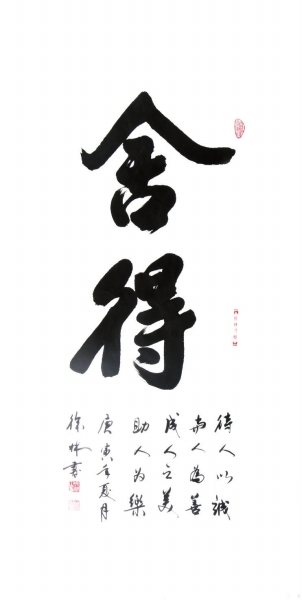 舍得
待人以誠
與人為善
成人之美
助人为樂
庚寅年夏月
徐 書